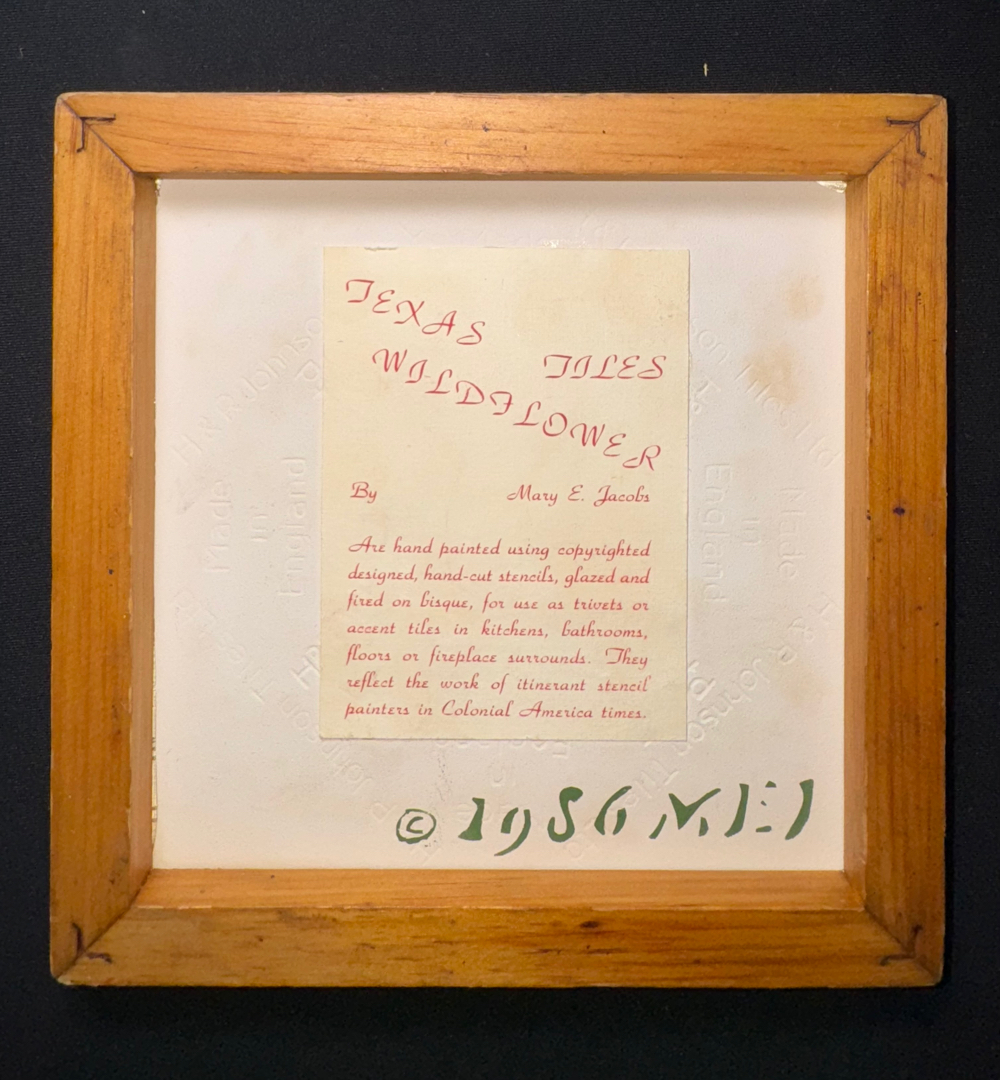 TEXAS
TILES
WILDFLOWER
By Mary E. Jacobs
Are hand painted using copyrighted
designed, hand-cut stencils, glazed and
fired on bisque, for use as trivets or
accent tiles in kitchens, bathrooms,
floors or fireplace surrounds. They
reflect the work of itinerant stencil
painters in Colonial America times.
© 1986 MEJ
H & R Johnson
Made
in
England
England
in
Made
Tiles Ltd
Johnson